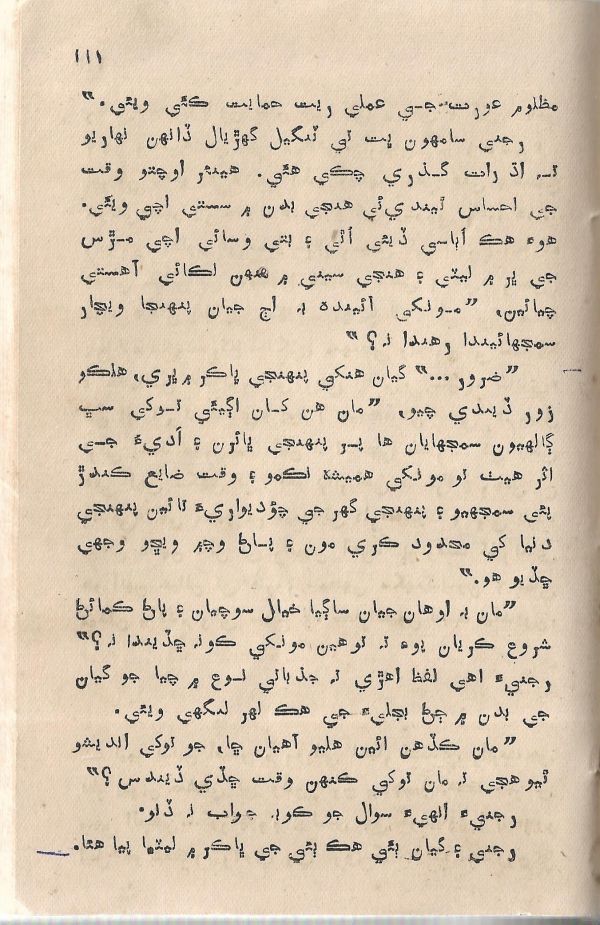 ١١١
مظلوم عورت جي عملي ريت حمايت ڪئي ويئي.”
رجني سامهون ڀت تي ٽنگيل گهڙيال ڏانهن نهاريو
تہ اڌ رات گذري چڪي هئي. هينئر اوچتو وقت
جي احساس ٿيندي ئي هنجي بدن ۾ سستي اچي ويئي.
هوءَ هڪ اٻاسي ڏيئي اٿي ۽ بتي وسائي اچي مڙس
جي ڀر ۾ ليٽي ۽ هنجي سيني ۾ منهن لڪائي آهستي
چيائين، “مونکي آئينده بہ اڄ جيان پنهنجا ويچار
سمجهائيندا رهندا نہ؟”
“ضرور ...” گيان هنکي پنهنجي ڀاڪر ۾ ڀري، هلڪو
زور ڏيندي چيو، “مان هن کان اڳيئي توکي سڀ
ڳالهيون سمجهايان ها پر پنهنجي ڀائرن ۽ اديءَ جي
اثر هيٺ تو مونکي هميشہ نڪمو ۽ وقت ضايع ڪندڙ
پئي سمجهيو ۽ پنهنجي گهر جي چؤديواريءَ تائين پنهنجي
دنيا کي محدود ڪري مون ۽ پاڻ وچ ۾ ويڇو وجهي
ڇڏيو هو.”
“مان بہ اوهان جيان ساڳيا خيال سوچيان ۽ پاڻ ڪمائڻ
شروع ڪريان پوءِ تہ توهين مونکي ڪونہ ڇڏيندا نہ؟”
رجنيءَ اهي لفظ اهڙي تہ جذباتي نوع ۾ چيا جو گيان
جي بدن ۾ ڄڻ بجليءَ جي هڪ لهر لنگهي ويئي.
“مان ڪڏهن ائين هليو آهيان ڇا، جو توکي انديشو
ٿيو هجي تہ مان توکي ڪنهن وقت ڇڏي ڏيندس؟”
رجنيءَ انهيءَ سوال جو ڪوبہ جواب نہ ڏنو.
رجني ۽ گيان ٻئي هڪ ٻئي جي ڀاڪر ۾ ليٽيا پيا هئا.